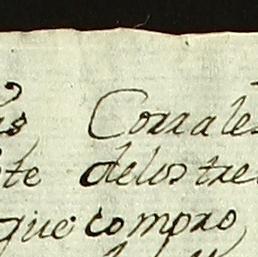 Corrales
te delos tre
que compro